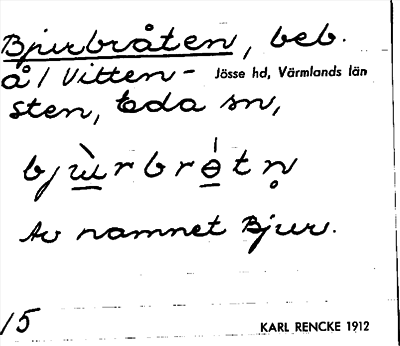 Bjurbråten, beb.
å/ Vitten- Jösse hd, Värmlands län
sten, Eda sn,
bjù̲rbrɵ̲́tn̥
Av namnet Bjur.
15 KARL RENCKE 1912